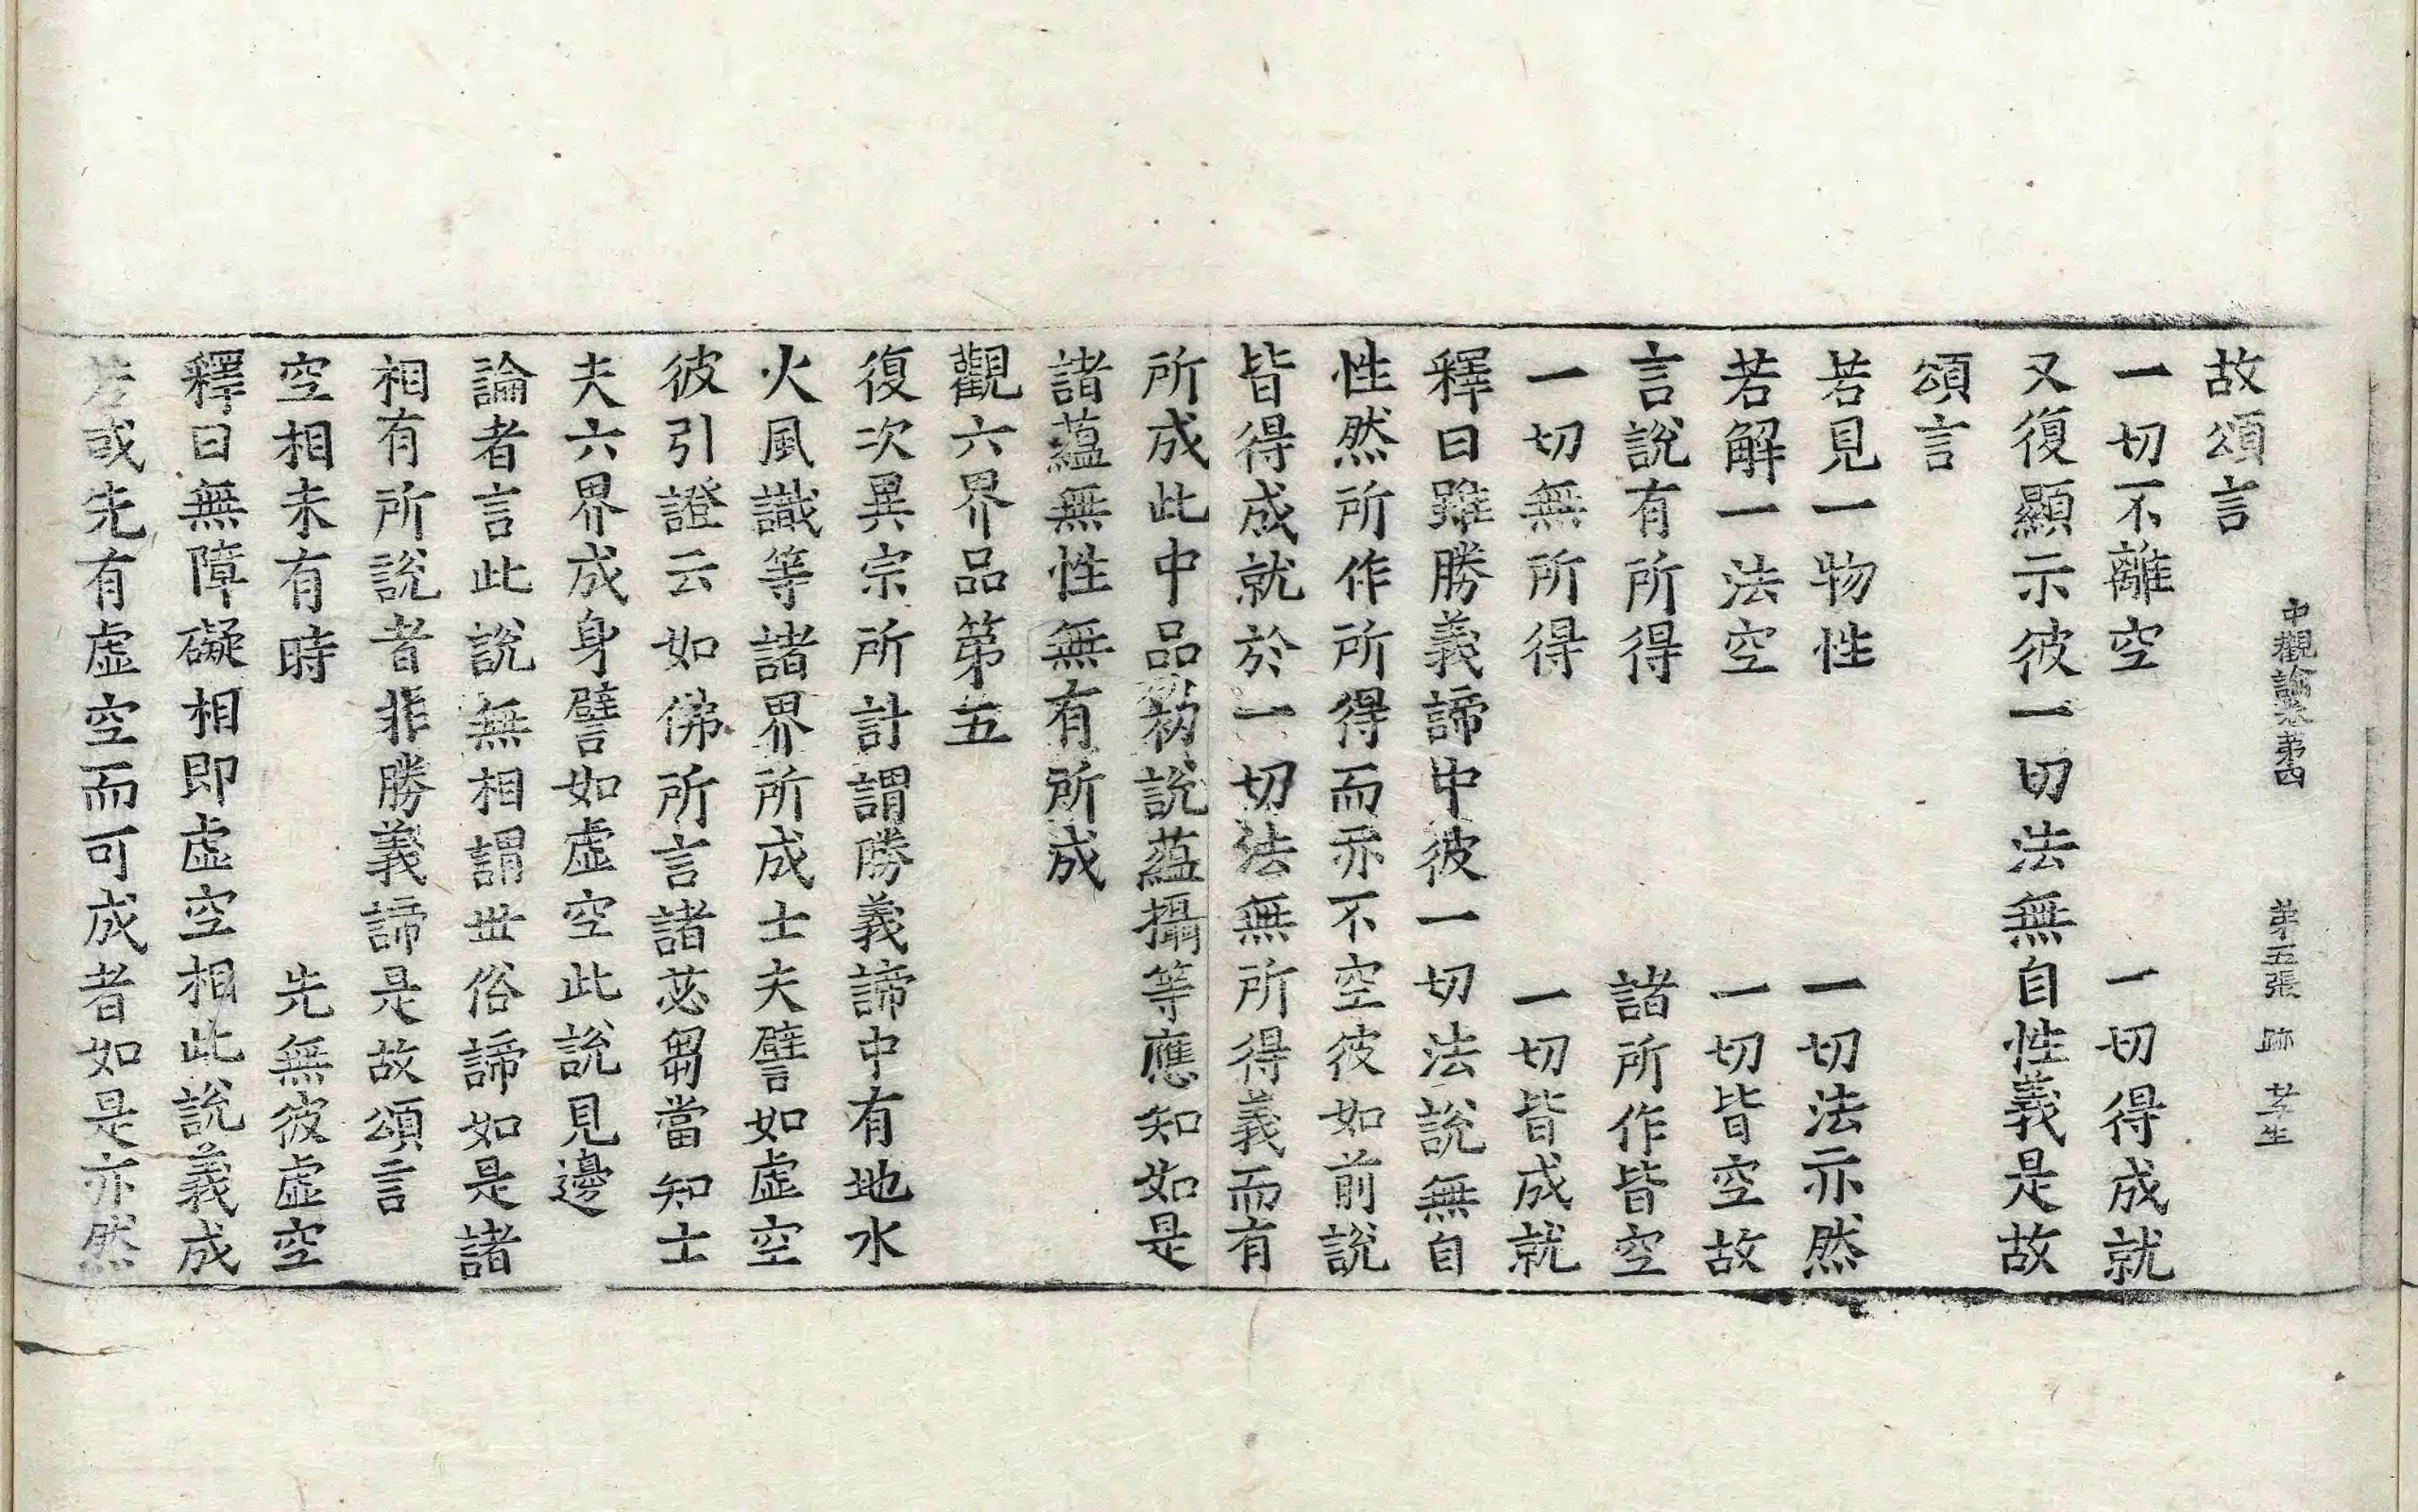 中觀論菐第四 第五張 跡 芿生
故頌言
一切不離空 一切得成就
又復顯示彼一切法無自性義是故
頌言
若見一物性 一切法亦然
若解一法空 一切皆空故
言說有所得 諸所作皆空
一切無所得 一切皆成就
釋曰雖勝義諦中彼一切法說無自
性然所作所得而亦不空彼如前說
皆得成就於一切法無所得義而有
所成此中品初說蘊攝等應知如是
諸蘊無性無有所成
觀六界品第五
復次異宗所計謂勝義諦中有地水
火風識等諸界所成士夫譬如虛空
彼引證云如佛所言諸苾芻當知士
夫六界成身譬如虛空此說見邊
論者言此說無相謂世俗諦如是諸
相有所說者非勝義諦是故頌言
空相未有時 先無彼虛空
釋曰無障礙相即虛空相此說義成
若或先有虛空而可成者如是亦然